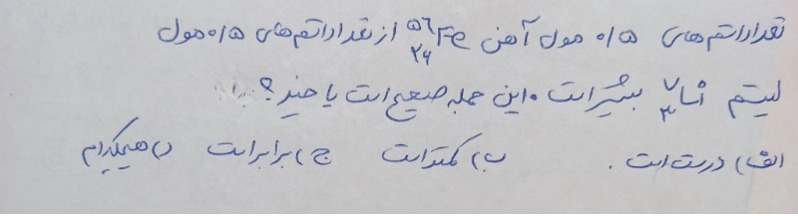 تعداد اتم های ۰/۵ مول آهن ⁵⁶₂₆Fe از تعداد اتم های ۰/۵ مول
لیتیم ⁷₃Li بیشتر است. این جمله صحیح است یا خیر؟
الف) درست است. ب) کمتر است ج) برابر است د) هیچکدام